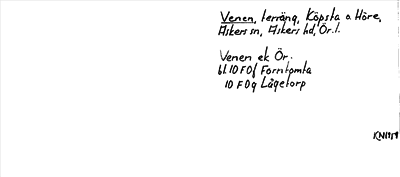 Venen, terräng, Köpsta o. Höre,
Askers sn, Askers hd, Ör. l.
Venen ek Ör.
bl. 10 F 0f Forntomta
10 F 0g Lågetorp